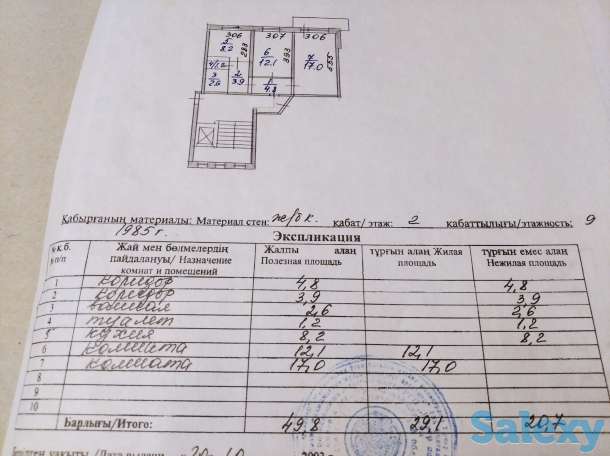 306 307 306
5 8,2 283 6 12,1 393 7 17,0
4/1,2
3 2,6 2 3,9 1 4,8
Қабырғаның материалы: Материал стен: ж/б к. қабат/ этаж: 2 қабаттылығы/этажность: 9
1985 г.
Экспликация
Жай мен бөлмелердің пайдалануы/ Назначение комнат и помещений
Жалпы алаң Полезная площадь
тұрғын алаң Жилая площадь
тұрғын емес алаң Нежилая площадь
1 коридор 4,8 4,8
2 коридор 3,9 3,9
3 2,6 2,6
4 туалет 1,2 1,2
5 кухня 8,2 8,2
6 комната 12,1 12,1
7 комната 17,0 17,0
8
9
10
Барлығы/Итого: 49,8 29,1 20,7
Salexy